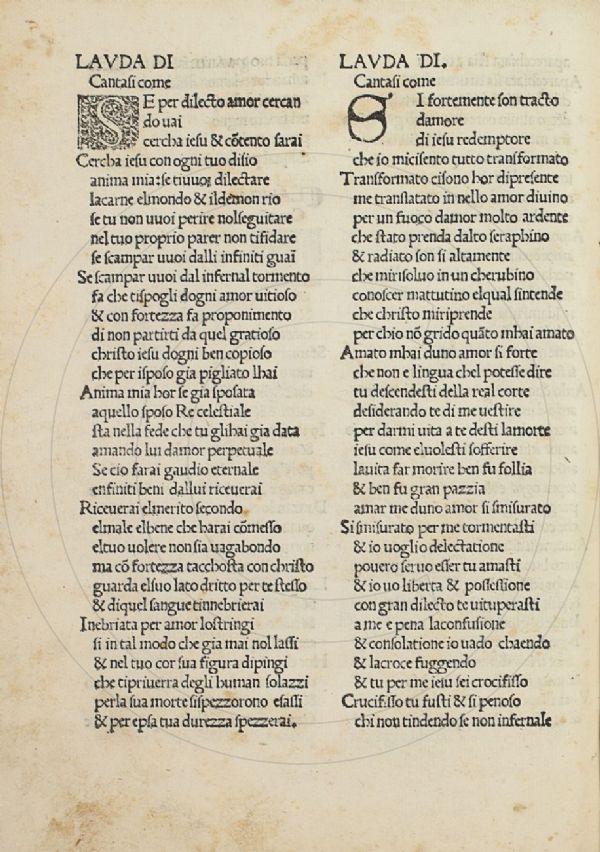 LAVDA DI
Cantasi come
SE per dilecto amor cercan
do uai
cercha iesu & cōtento sarai
Cercha iesu con ogni tuo disio
anima mia: se tiuuoi dilectare
lacarne elmondo & ildemon rio
se tu non uuoi perire nolseguitare
nel tuo proprio parer non tifidare
se scampar uuoi dalli infiniti guai
Se scampar uuoi dal infernal tormento
fa che tispogli dogni amor uitioso
& con fortezza fa proponimento
di non partirti da quel gratioso
christo iesu dogni ben copioso
che per isposo gia pigliato lhai
Anima mia hor se gia sposata
aquello sposo Re celestiale
sta nella fede che tu glihai gia data
amando lui damor perpetuale
Se cio farai gaudio eternale
enfiniti beni dallui riceuerai
Riceuerai elmerito secondo
elmale elbene che harai cōmesso
eltuo uolere non sia uagabondo
ma cō fortezza tacchosta con christo
guarda elsuo lato dritto per te stesso
& diquel sangue tinnebrierai
Inebriata per amor lostringi
si in tal modo che gia mai nol lassi
& nel tuo cor sua figura dipingi
che tipriuerra degli human solazzi
perla sua morte sispezzorono esassi
& per epsa tua durezza spezzerai.
LAVDA DI.
Cantasi come
SI fortemente son tracto
damore
di iesu redemptore
che io micisento tutto transformato
Transformato cisono hor dipresente
me translatato in nello amor diuino
per un fuoco damor molto ardente
che stato prenda dalto seraphino
& radiato son si altamente
che mirisoluo in un cherubino
conoscer mattutino elqual sintende
che christo miriprende
per chio nō grido quāto mhai amato
Amato mhai duno amor si forte
che non e lingua chel potesse dire
tu descendesti della real corte
desiderando te di me uestire
per darmi uita a te desti lamorte
iesu come eluolesti sofferire
lauita far morire ben fu follia
& ben fu gran pazzia
amar me duno amor si smisurato
Si smisurato per me tormentasti
& io uoglio delectatione
pouero seruo esser tu amasti
& io uo liberta & possessione
con gran dilecto te uituperasti
a me e pena laconfusione
& consolatione io uado chaendo
& lacroce fuggendo
& tu per me iesu sei crocifisso
Crucifisso tu fusti & si penoso
chi non tindendo se non infernale